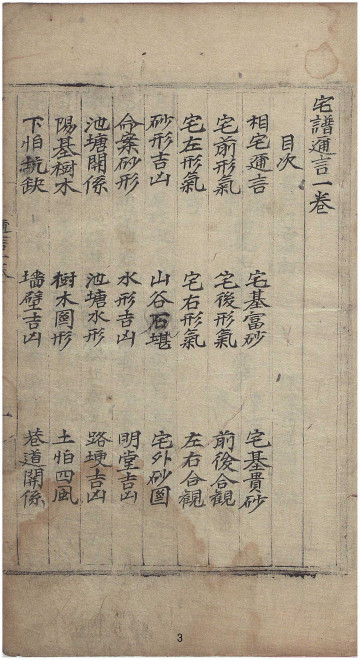 宅譜邇言一卷
目次
相宅邇言 宅基富砂 宅基貴砂
宅前形氣 宅後形氣 前後合觀
宅左形氣 宅右形氣 左右合觀
砂形吉凶 山谷石堪 宅外砂圖
命案砂形 水形吉凶 明堂吉凶
池塘開係 池塘水形 路埂吉凶
陽基樹木 樹木圖形 土怕四風
下怕坑缺 墻壁吉凶 巷道開係
邇言一卷 一
3